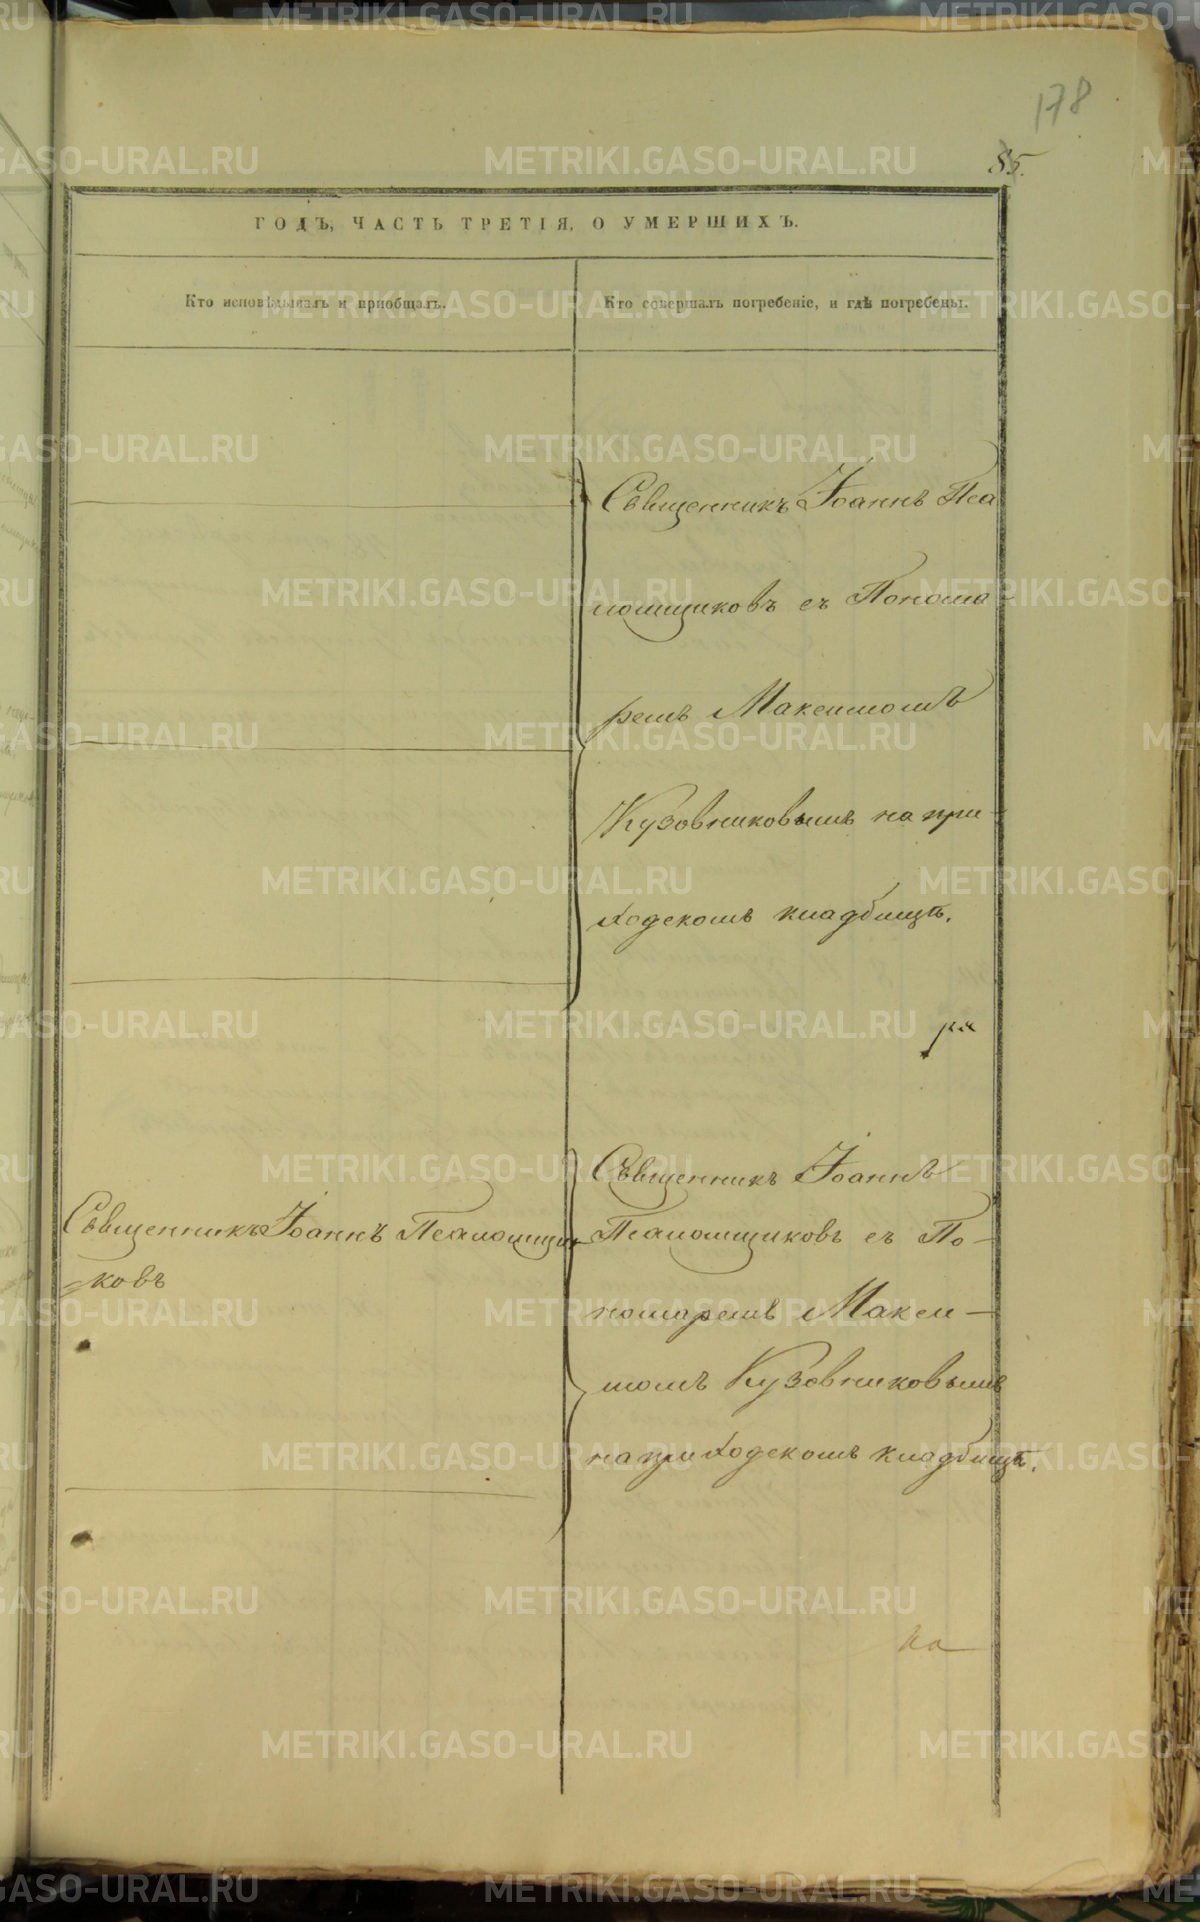 178
85.
ГОДЪ, ЧАСТЬ ТРЕТІЯ, О УМЕРШИХЪ.
Кто исповѣдывалъ и пріобщалъ.
Кто совершалъ погребеніе, и гдѣ погребены.
Священникъ Іоаннъ Пса
ломщиковъ съ Понома-
ремъ Максимомъ
Кузовниковымъ на при-
ходскомъ кладбищѣ.
Священникъ Іоаннъ Псаломщи
ковъ
Священникъ Іоаннъ
Псаломщиковъ съ По-
номаремъ Макси-
момъ Кузовниковымъ
на приходскомъ кладбищѣ.
METRIKI.GASO-URAL.RU